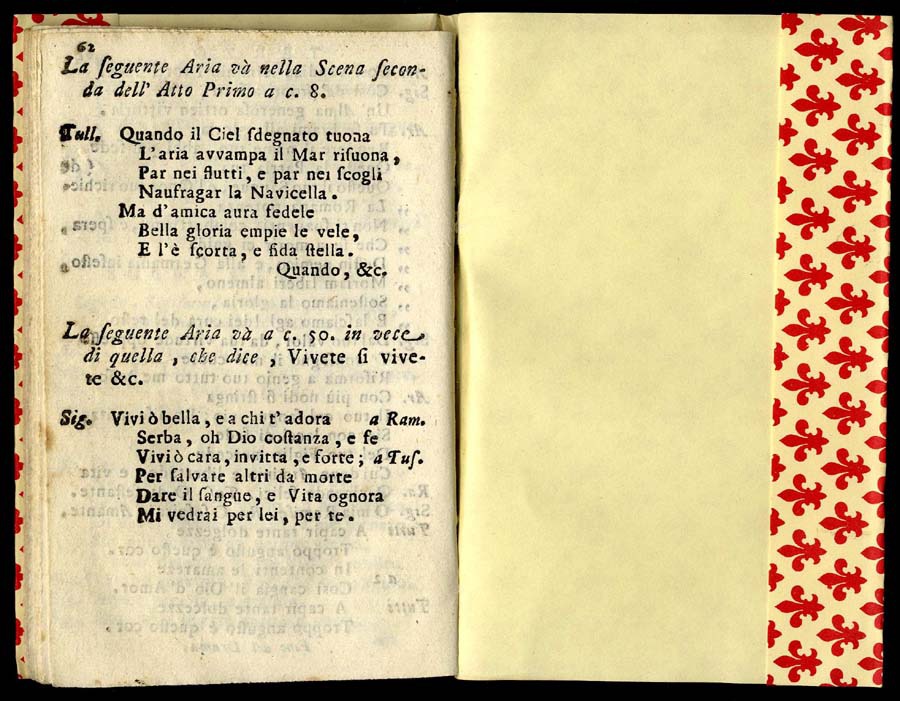 62
La ſeguente Aria và nella Scena ſecon-
da dell' Atto Primo a c. 8.
Tull. Quando il Ciel ſdegnato tuona
L'aria avvampa il Mar riſuona,
Par nei flutti, e par nei ſcogli
Naufragar la Navicella.
Ma d'amica aura fedele
Bella gloria empie le vele,
E l'è ſcorta, e fida ſtella.
Quando, &c.
La ſeguente Aria và a c. 50. in vece
di quella, che dice, Vivete ſi vive-
te &c.
Sig. Vivi ò bella, e a chi t'adora a Ram.
Serba, oh Dio coſtanza, e fe
Vivi ò cara, invitta, e forte; a Tuſ.
Per ſalvare altri da morte
Dare il ſangue, e Vita ognora
Mi vedrai per lei, per te.